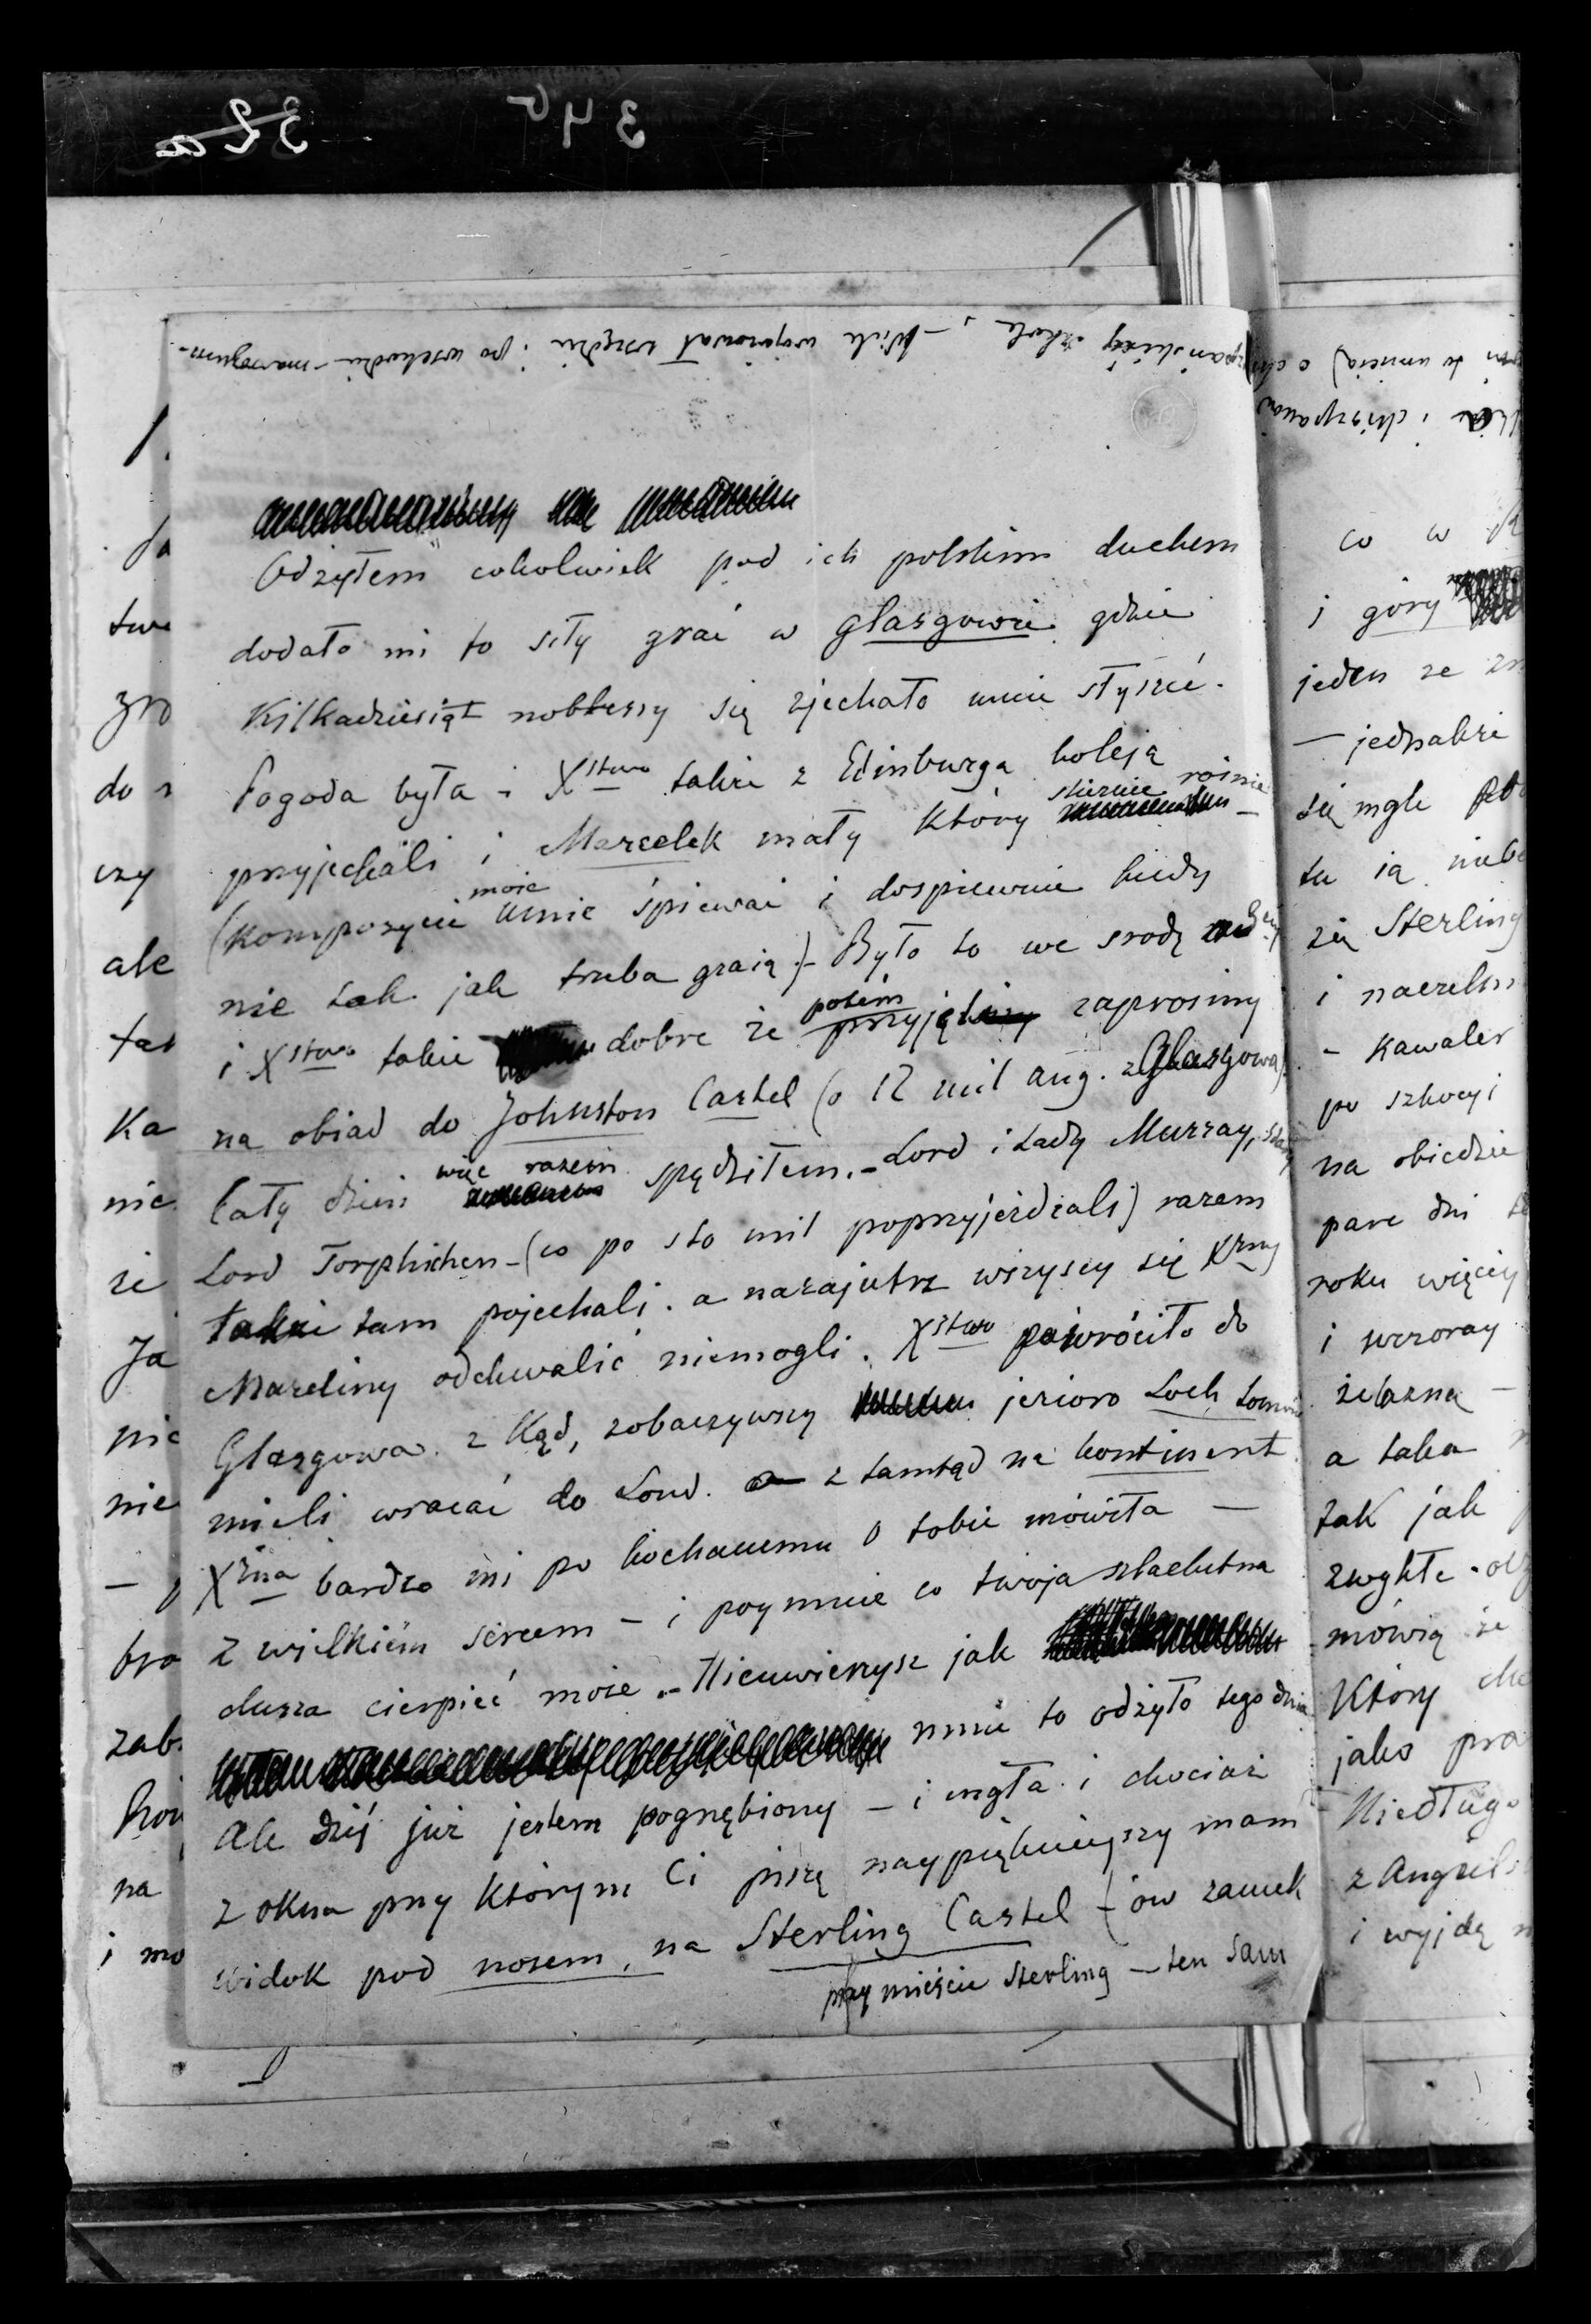 32a
345
pańskiéj szkole, – Wiele wojażował wszędzie i po wschodzie –
Odżyłem cokolwiek pod ich polskim duchem
dodało mi to siły grać w Glasgowie gdzie
Kilkadziesiąt noblessy się zjechało mnie słyszéć.
Pogoda była i Xstwo także z Edinburga koleją
przyjechali i Marcelek mały Który ślicznie rośnie –
(Kompozycie moie umie śpiewać i dospiewuie kiedy
nie tak jak trzeba graią) – Było to we srodę
i Xstwo takie dobre że potém przyjęli zaprosiny
na obiad do Johnston Castel (o 12 mil ang. z Glasgowa)
Cały dzień więc razem spędziłem. – Lord i Lady Murray, stary
Lord Torphichen – (co po sto mil poprzyjeżdzali) razem
także tam pojechali. a nazajutrz wszyscy się Xżny
Marceliny odchwalić niemogli. Xstwo powróciło do
Glasgowa. z Kąd, zobaczywszy jezioro Loch Lomond
mieli wracać do Lond. z tamtąd na kontinent.
Xżna bardzo mi po kochanemu o tobie mówiła –
z wielkiém sercem – i poymuie co twoja szlachetna
dusza cierpiéć może. – Nieuwierzysz jak
mnie to odżyło tego dnia
Ale dziś już jestem pognębiony – i mgła i chociaż
z okna przy Którym Ci piszę naypiękniejszy mam
widok pod nosem, na Sterling Castel – (ów zamek
przy mieście Sterling – ten sam
co w
i góry
jeden ze
– jednakże
się mgle
tu ią
się Sterling
i naczeln
– Kawaler
po szkocyi
na obiedzie
pare dni
roku więcéy
i wczoray
żelazną –
a taka
tak jak
zwykłe
mówią że
Który
jako
Niedługo
z Angiels
i wyjdę
do
czy
ale
Ka
nie
że
Ja
nie
nie
zab
na
i mo